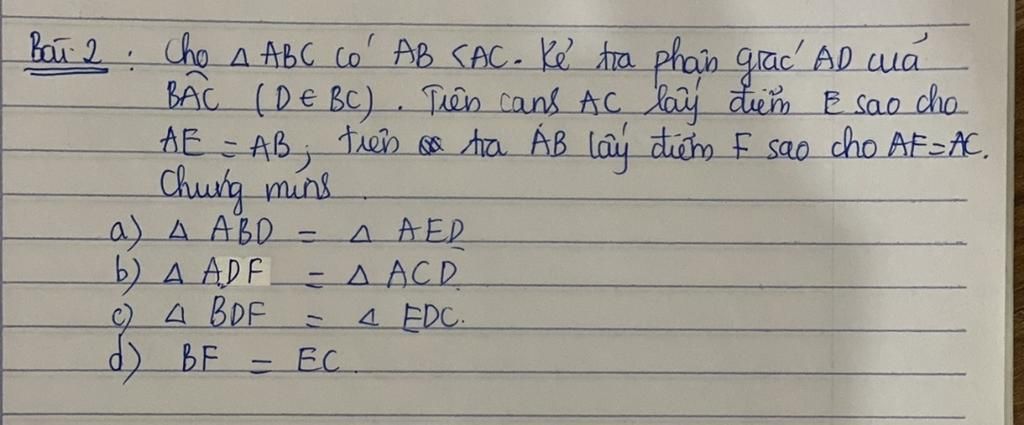 Bài 2 : Cho Δ ABC có AB < AC. Kẻ tia phân giác AD của
BAC (D ∈ BC). Trên cạnh AC lấy điểm E sao cho
AE = AB, trên tia AB lấy điểm F sao cho AF = AC.
Chứng minh
a) Δ ABD = Δ AED
b) Δ ADF = Δ ACD
c) Δ BDF = Δ EDC.
d) BF = EC.